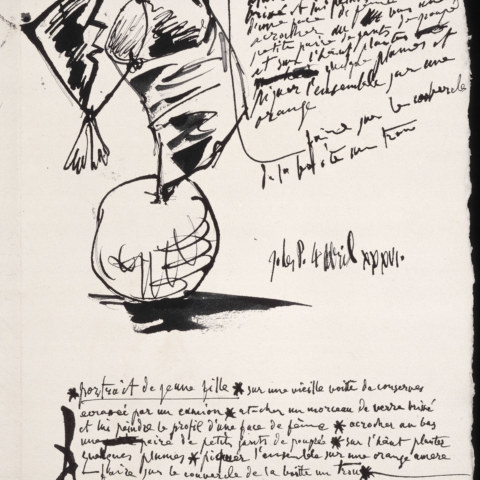 brisé et lui peindre
d'une face de femme
accrocher au bas une
petite paire de gants de poupée
et sur l'haut planter
quelques plumes et
piquer l'ensemble sur une
orange
faire sur le couvercle
de la boîte un trou
4 Abril XXXVI.
*portrait de jeune fille * sur une vieille boite de conserves
écrasée par un camion * atacher un morceau de verre brisé
et lui peindre le profil d'une face de fême * acrocher au bas
une paire de petits gants de poupée * sur l'haut planter
quelques plumes * piquer l'ensemble sur une orange amere
faire sur le couvercle de la boite un trou *